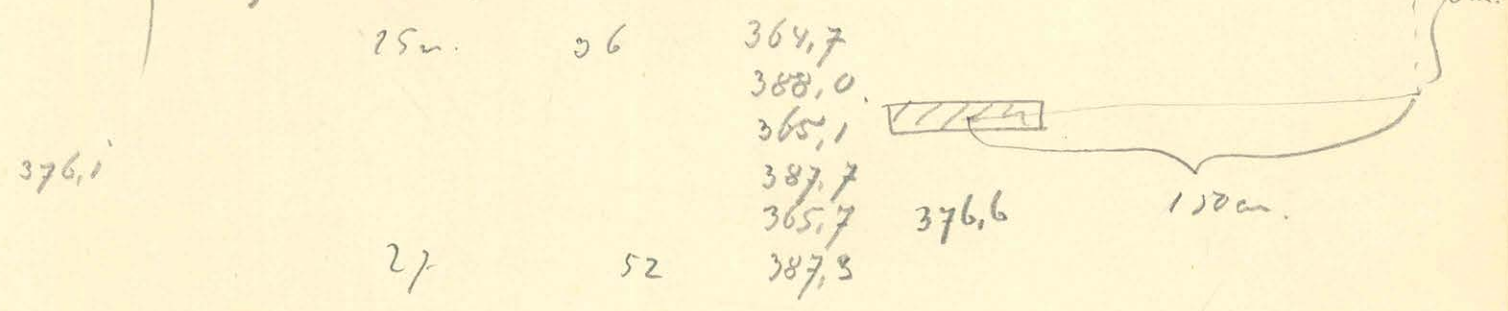 25m. 36 364,7
388,0
365,1
376,1 387,7
365,7 376,6
27 52 387,3